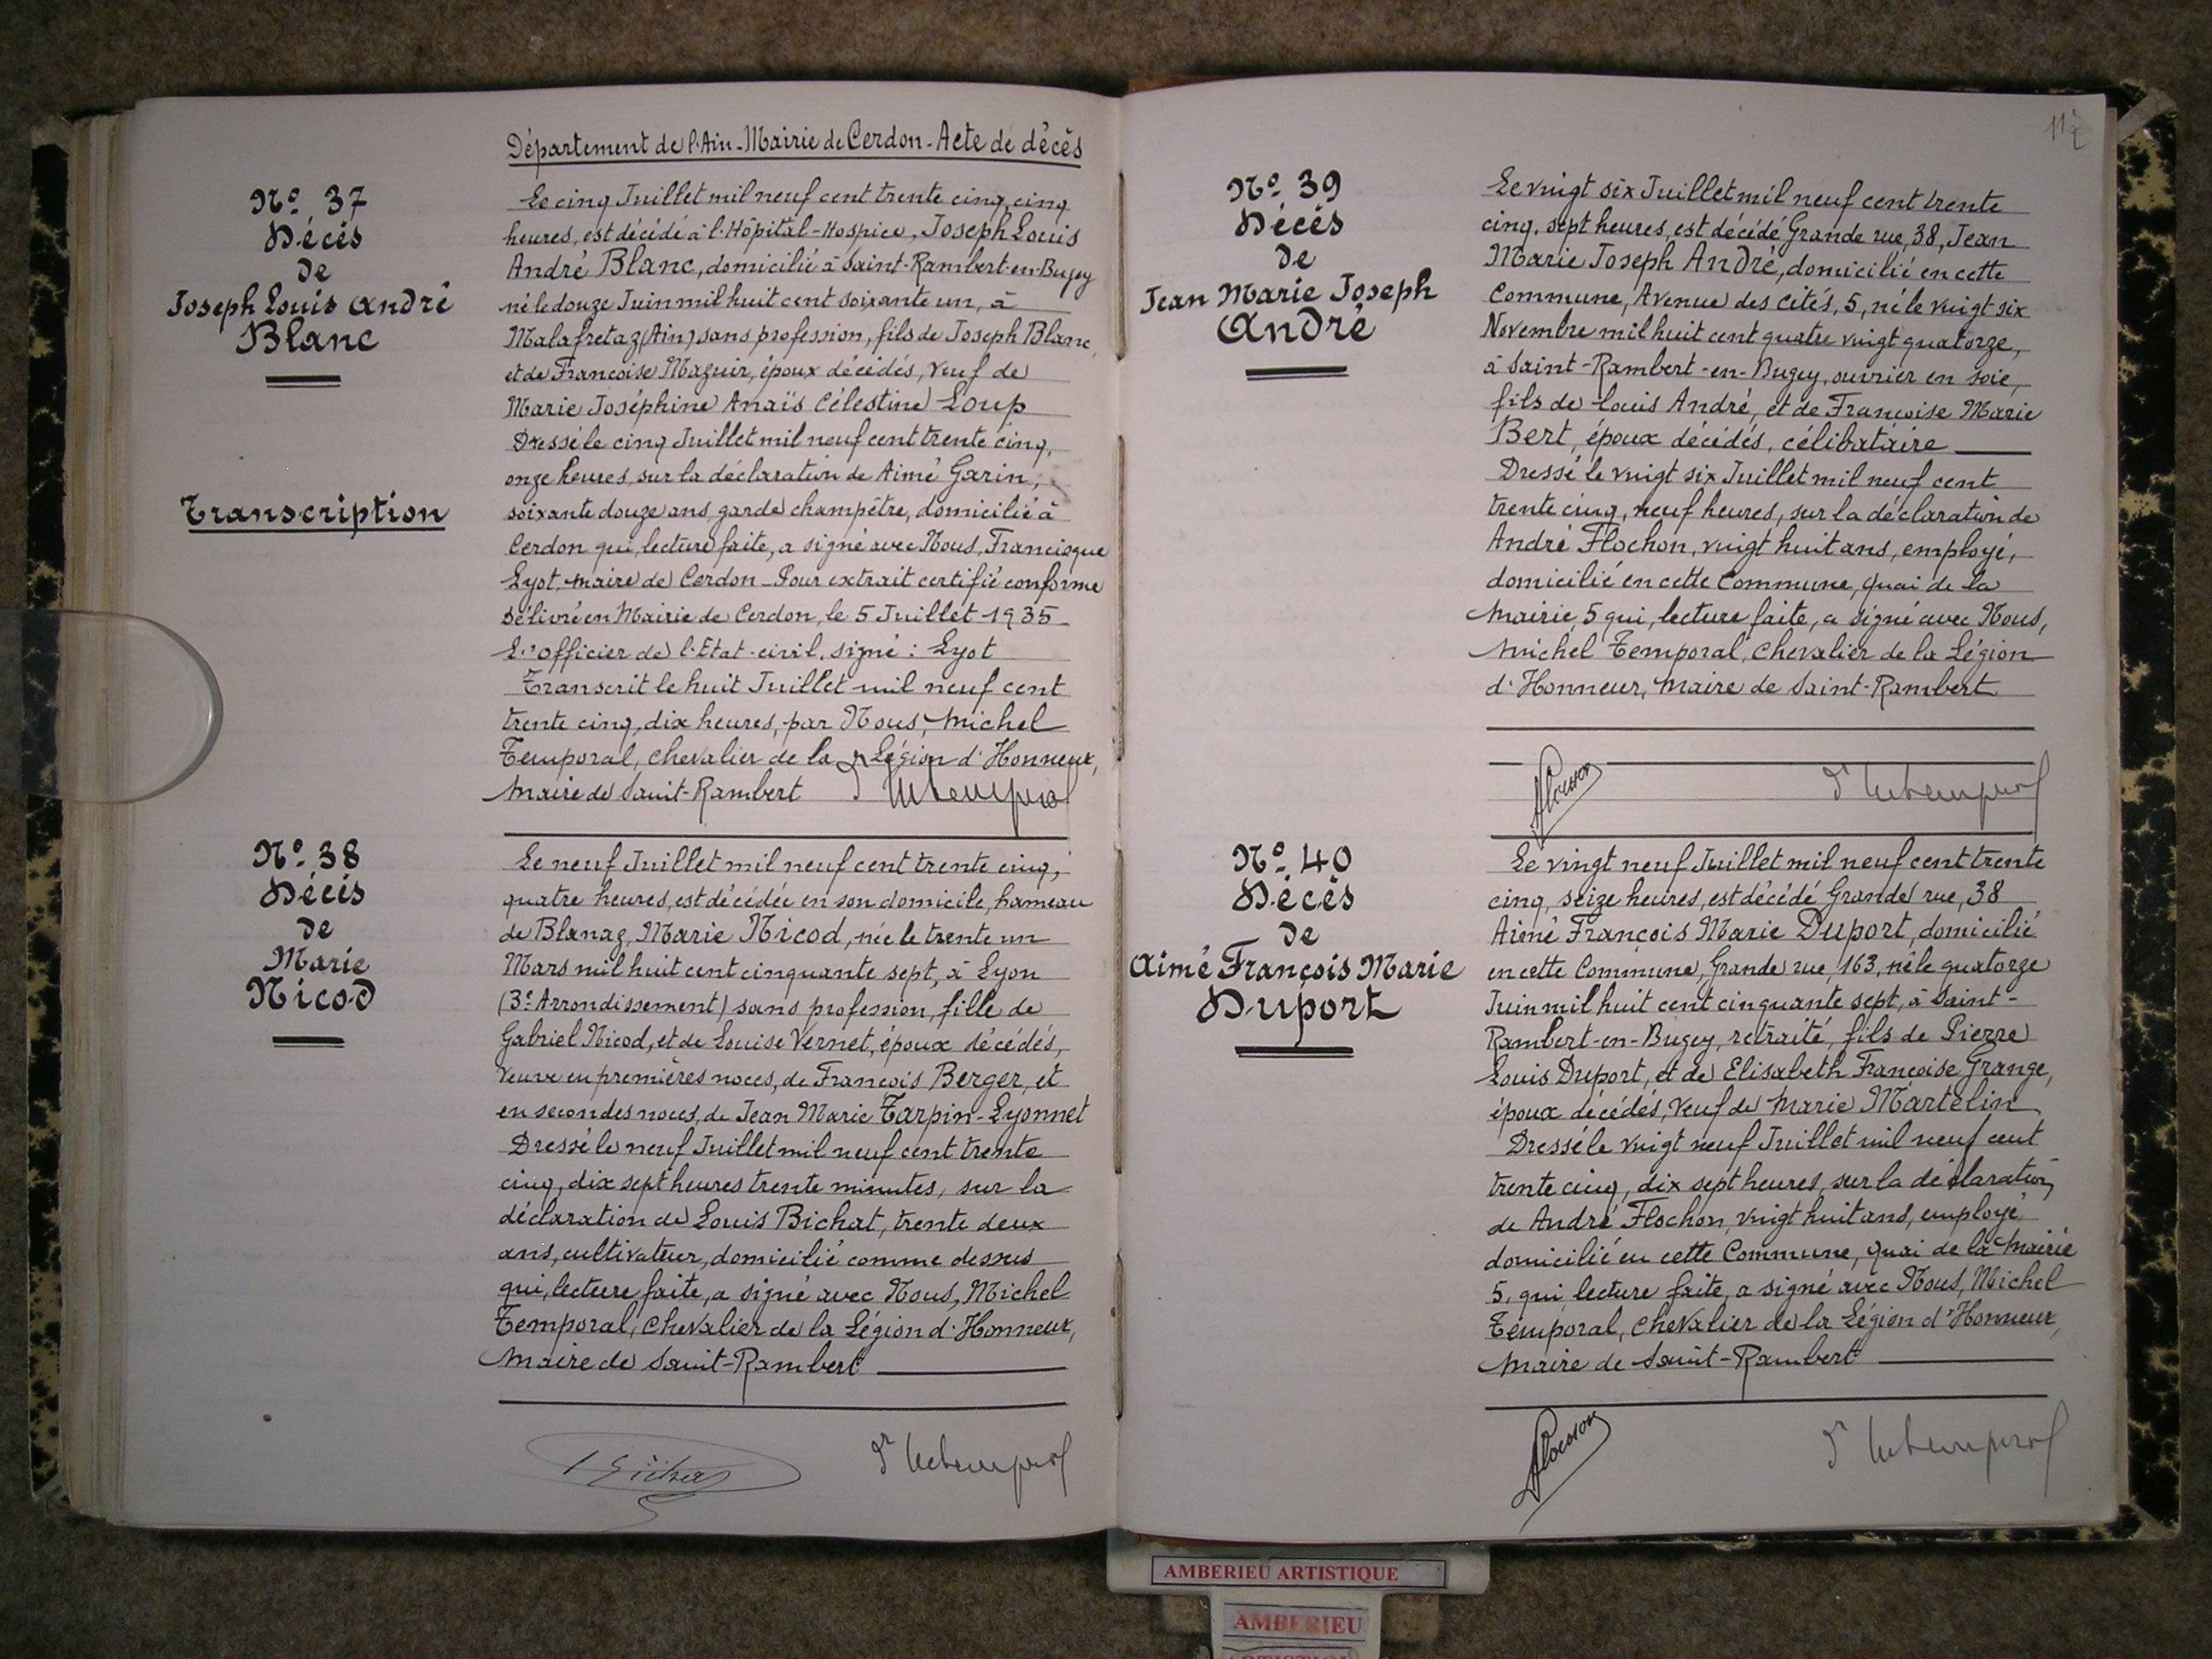 Département de l'Ain - Mairie de Cerdon - Acte de décès
No. 37
Décès
de
Joseph Louis André
Blanc
Transcription
Le cinq Juillet mil neuf cent trente cinq, cinq
heures, est décédé à l'Hôpital-Hospice, Joseph Louis
André Blanc, domicilié à Saint-Rambert-en-Bugey
né le douze Juin mil huit cent soixante un, à
Malafretaz (Ain) sans profession, fils de Joseph Blanc,
et de Françoise Maguir, époux décédés, veuf de
Marie Joséphine Anaïs Célestine Loup
Dressé le cinq Juillet mil neuf cent trente cinq,
onze heures, sur la déclaration de Aimé Garin,
soixante douze ans, garde champêtre, domicilié à
Cerdon qui, lecture faite, a signé avec Nous, Francisque
Lyot, maire de Cerdon - Pour extrait certifié conforme
délivré en Mairie de Cerdon, le 5 Juillet 1935
L'officier de l'Etat-civil, signé : Lyot
Transcrit le huit Juillet mil neuf cent
trente cinq, dix heures, par Nous, Michel
Temporal, Chevalier de la Légion d'Honneur,
Maire de Saint-Rambert
No. 38
Décès
de
Marie
Nicod
Le neuf Juillet mil neuf cent trente cinq,
quatre heures, est décédée en son domicile, hameau
de Blanaz, Marie Nicod, née le trente un
Mars mil huit cent cinquante sept, à Lyon
(3e Arrondissement) sans profession, fille de
Gabriel Nicod, et de Louise Vernet, époux décédés,
veuve en premières noces, de François Berger, et
en secondes noces, de Jean Marie Tarpin-Lyonnet
Dressé le neuf Juillet mil neuf cent trente
cinq, dix sept heures trente minutes, sur la
déclaration de Louis Bichat, trente deux
ans, cultivateur, domicilié comme dessus
qui, lecture faite, a signé avec Nous, Michel
Temporal, Chevalier de la Légion d'Honneur,
Maire de Saint-Rambert
112
No. 39
Décès
de
Jean Marie Joseph
André
Le vingt six Juillet mil neuf cent trente
cinq, sept heures, est décédé Grande rue, 38, Jean
Marie Joseph André, domicilié en cette
Commune, Avenue des Cités, 5, né le vingt six
Novembre mil huit cent quatre vingt quatorze,
à Saint-Rambert-en-Bugey, ouvrier en soie,
fils de Louis André, et de Françoise Marie
Bert, époux décédés, célibataire
Dressé le vingt six Juillet mil neuf cent
trente cinq, neuf heures, sur la déclaration de
André Flochon, vingt huit ans, employé,
domicilié en cette Commune, quai de la
Mairie, 5 qui, lecture faite, a signé avec Nous,
Michel Temporal, Chevalier de la Légion
d'Honneur, Maire de Saint-Rambert
No. 40
Décès
de
Aimé François Marie
Duport
Le vingt neuf Juillet mil neuf cent trente
cinq, seize heures, est décédé Grande rue, 38
Aimé François Marie Duport, domicilié
en cette Commune, Grande rue, 163, né le quatorze
Juin mil huit cent cinquante sept, à Saint-
Rambert-en-Bugey, retraité, fils de Pierre
Louis Duport, et de Elisabeth Françoise Grange,
époux décédés, veuf de Marie Martelin
Dressé le vingt neuf Juillet mil neuf cent
trente cinq, dix sept heures, sur la déclaration
de André Flochon, vingt huit ans, employé,
domicilié en cette Commune, quai de la Mairie
5, qui, lecture faite, a signé avec Nous, Michel
Temporal, Chevalier de la Légion d'Honneur,
Maire de Saint-Rambert
AMBERIEU ARTISTIQUE
AMBERIEU